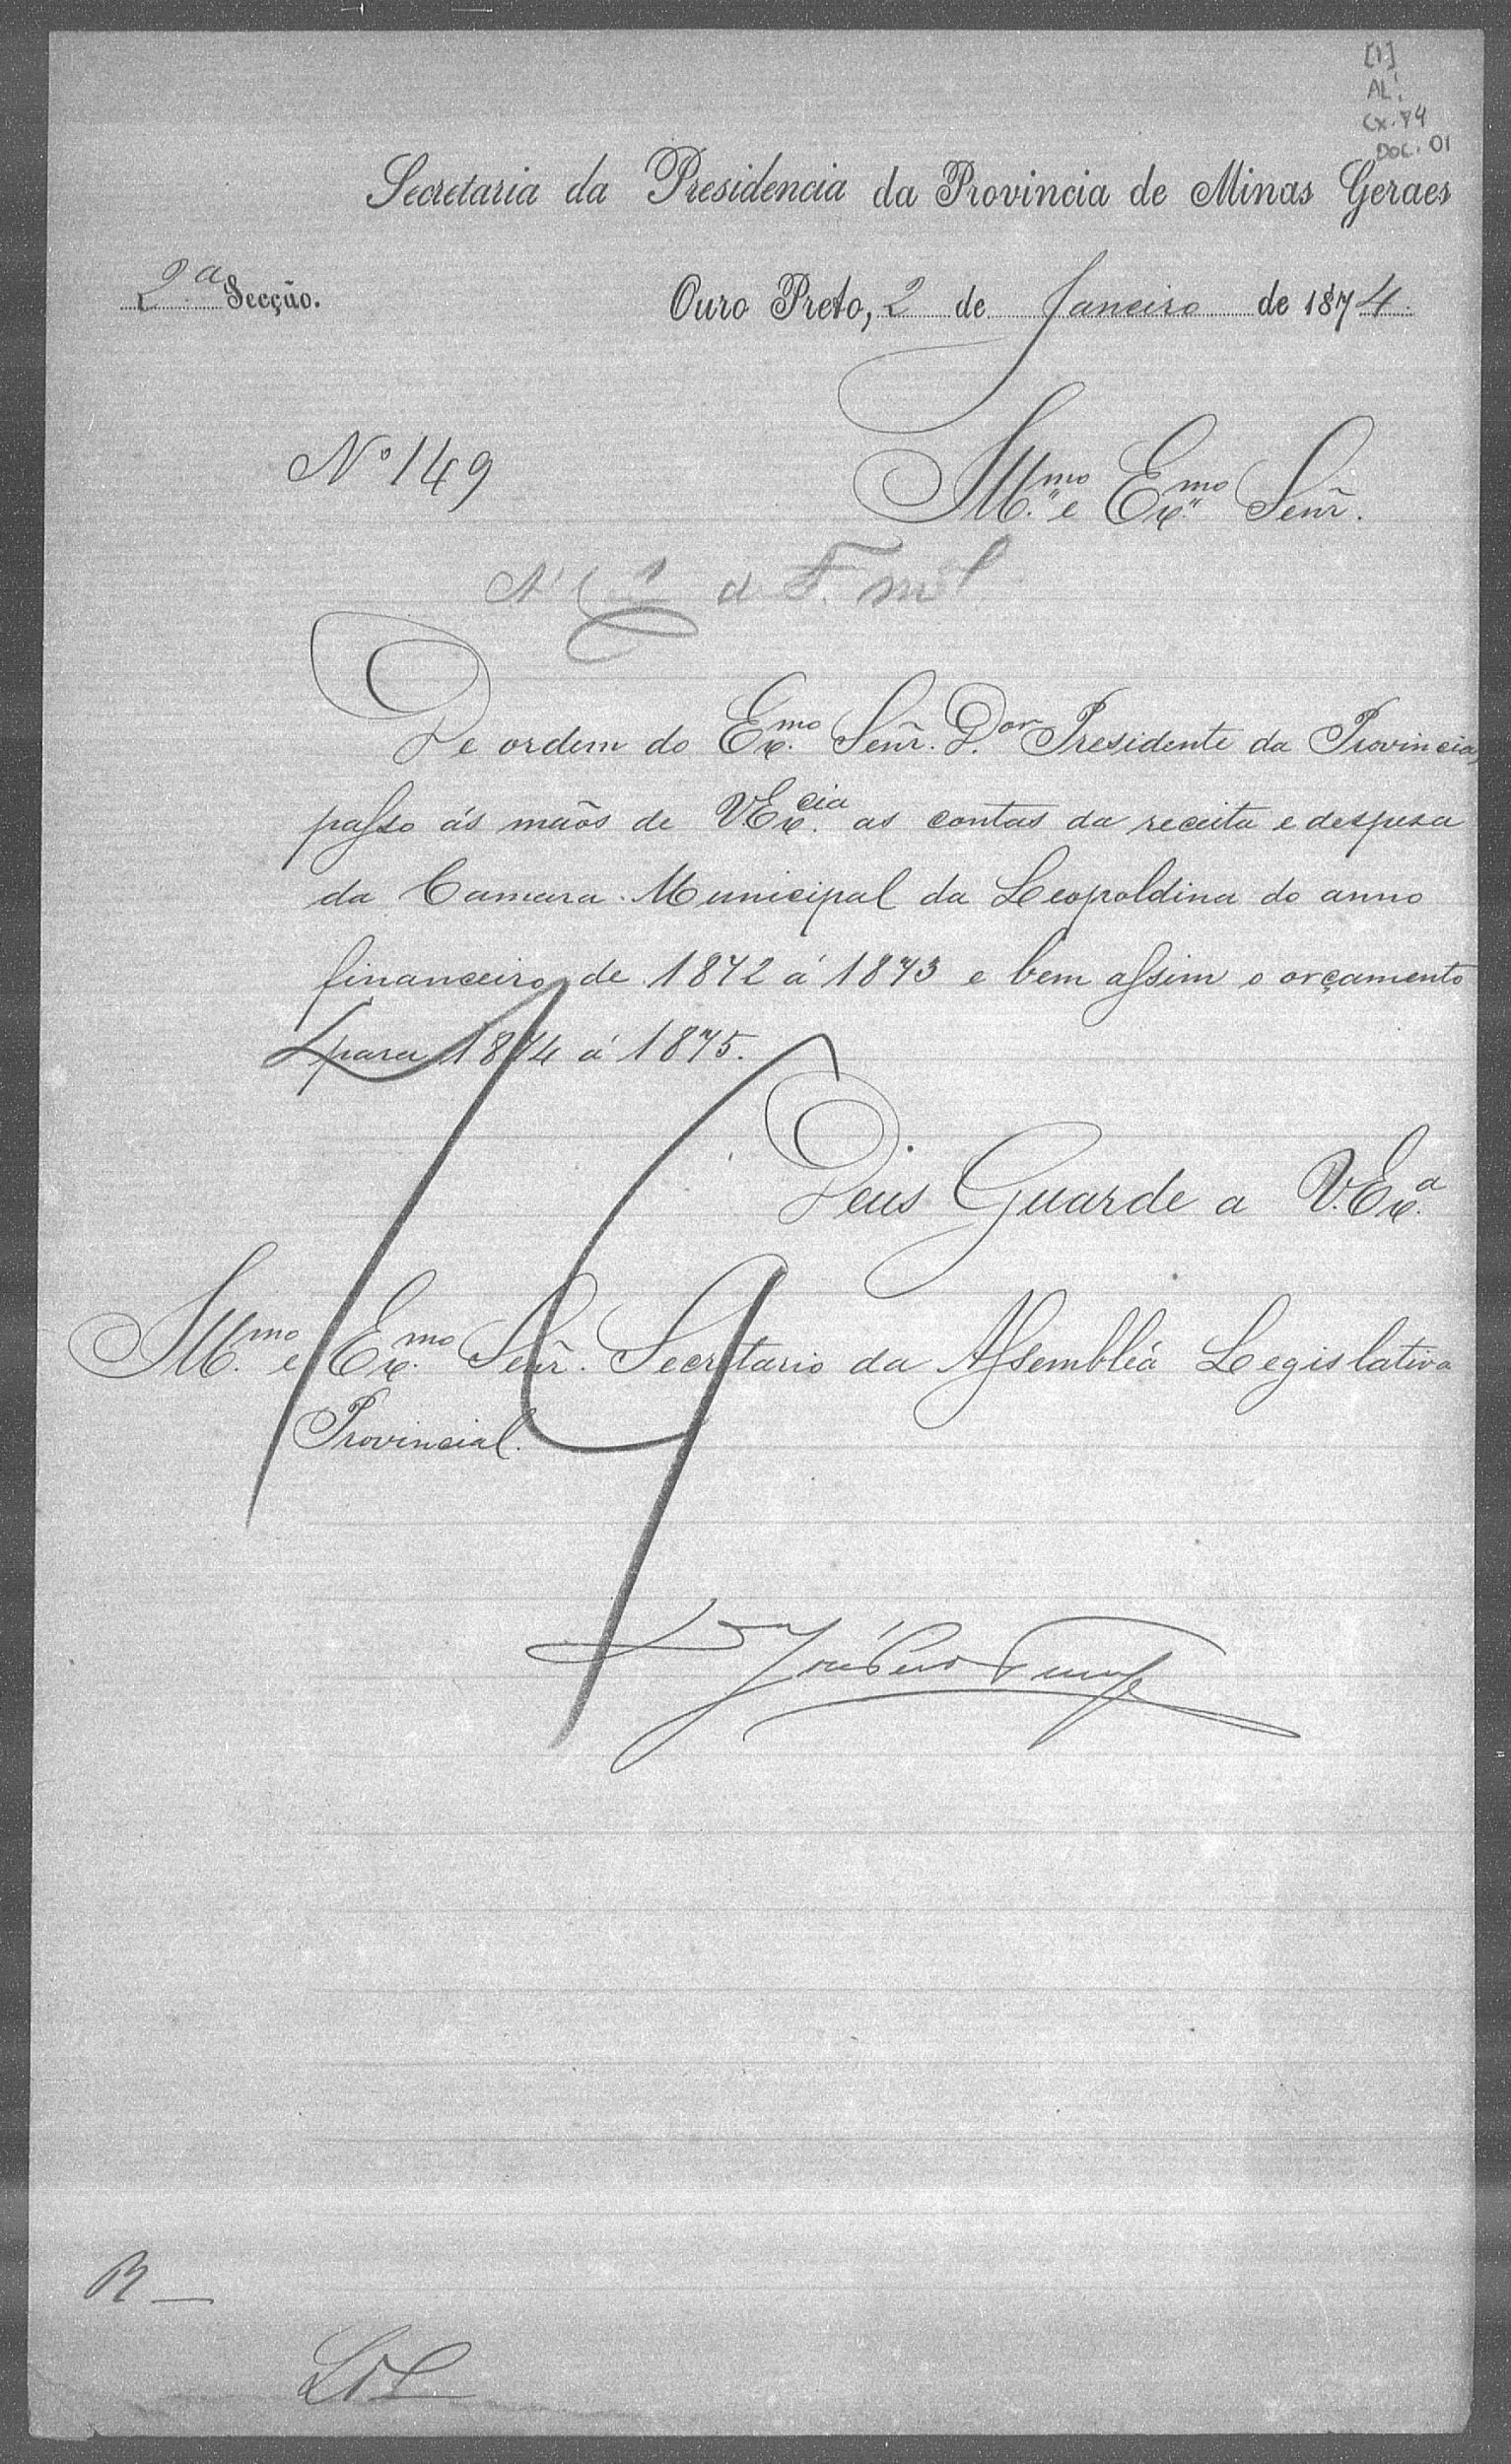 [1]
AL.
CX. 74
DOC. 01
Secretaria da Presidencia da Provincia de Minas Geraes
2.ª Secção.
Ouro Preto, 2 de Janeiro de 1874.
Nº 149
Ill.mo e Ex.mo Senr̃.
De ordem do Ex.mo Senr̃. D.or Presidente da Provincia,
passo ás mãos de V.Ex.cia as contas da receita e despesa
da Camara Municipal da Leopoldina do anno
financeiro de 1872 á 1873 e bem assim o orçamento
para 1874 á 1875.
Deus Guarde a V.Ex.a
Ill.mo e Ex.mo Senr̃. Secretario da Assembléa Legislativa
Provincial.